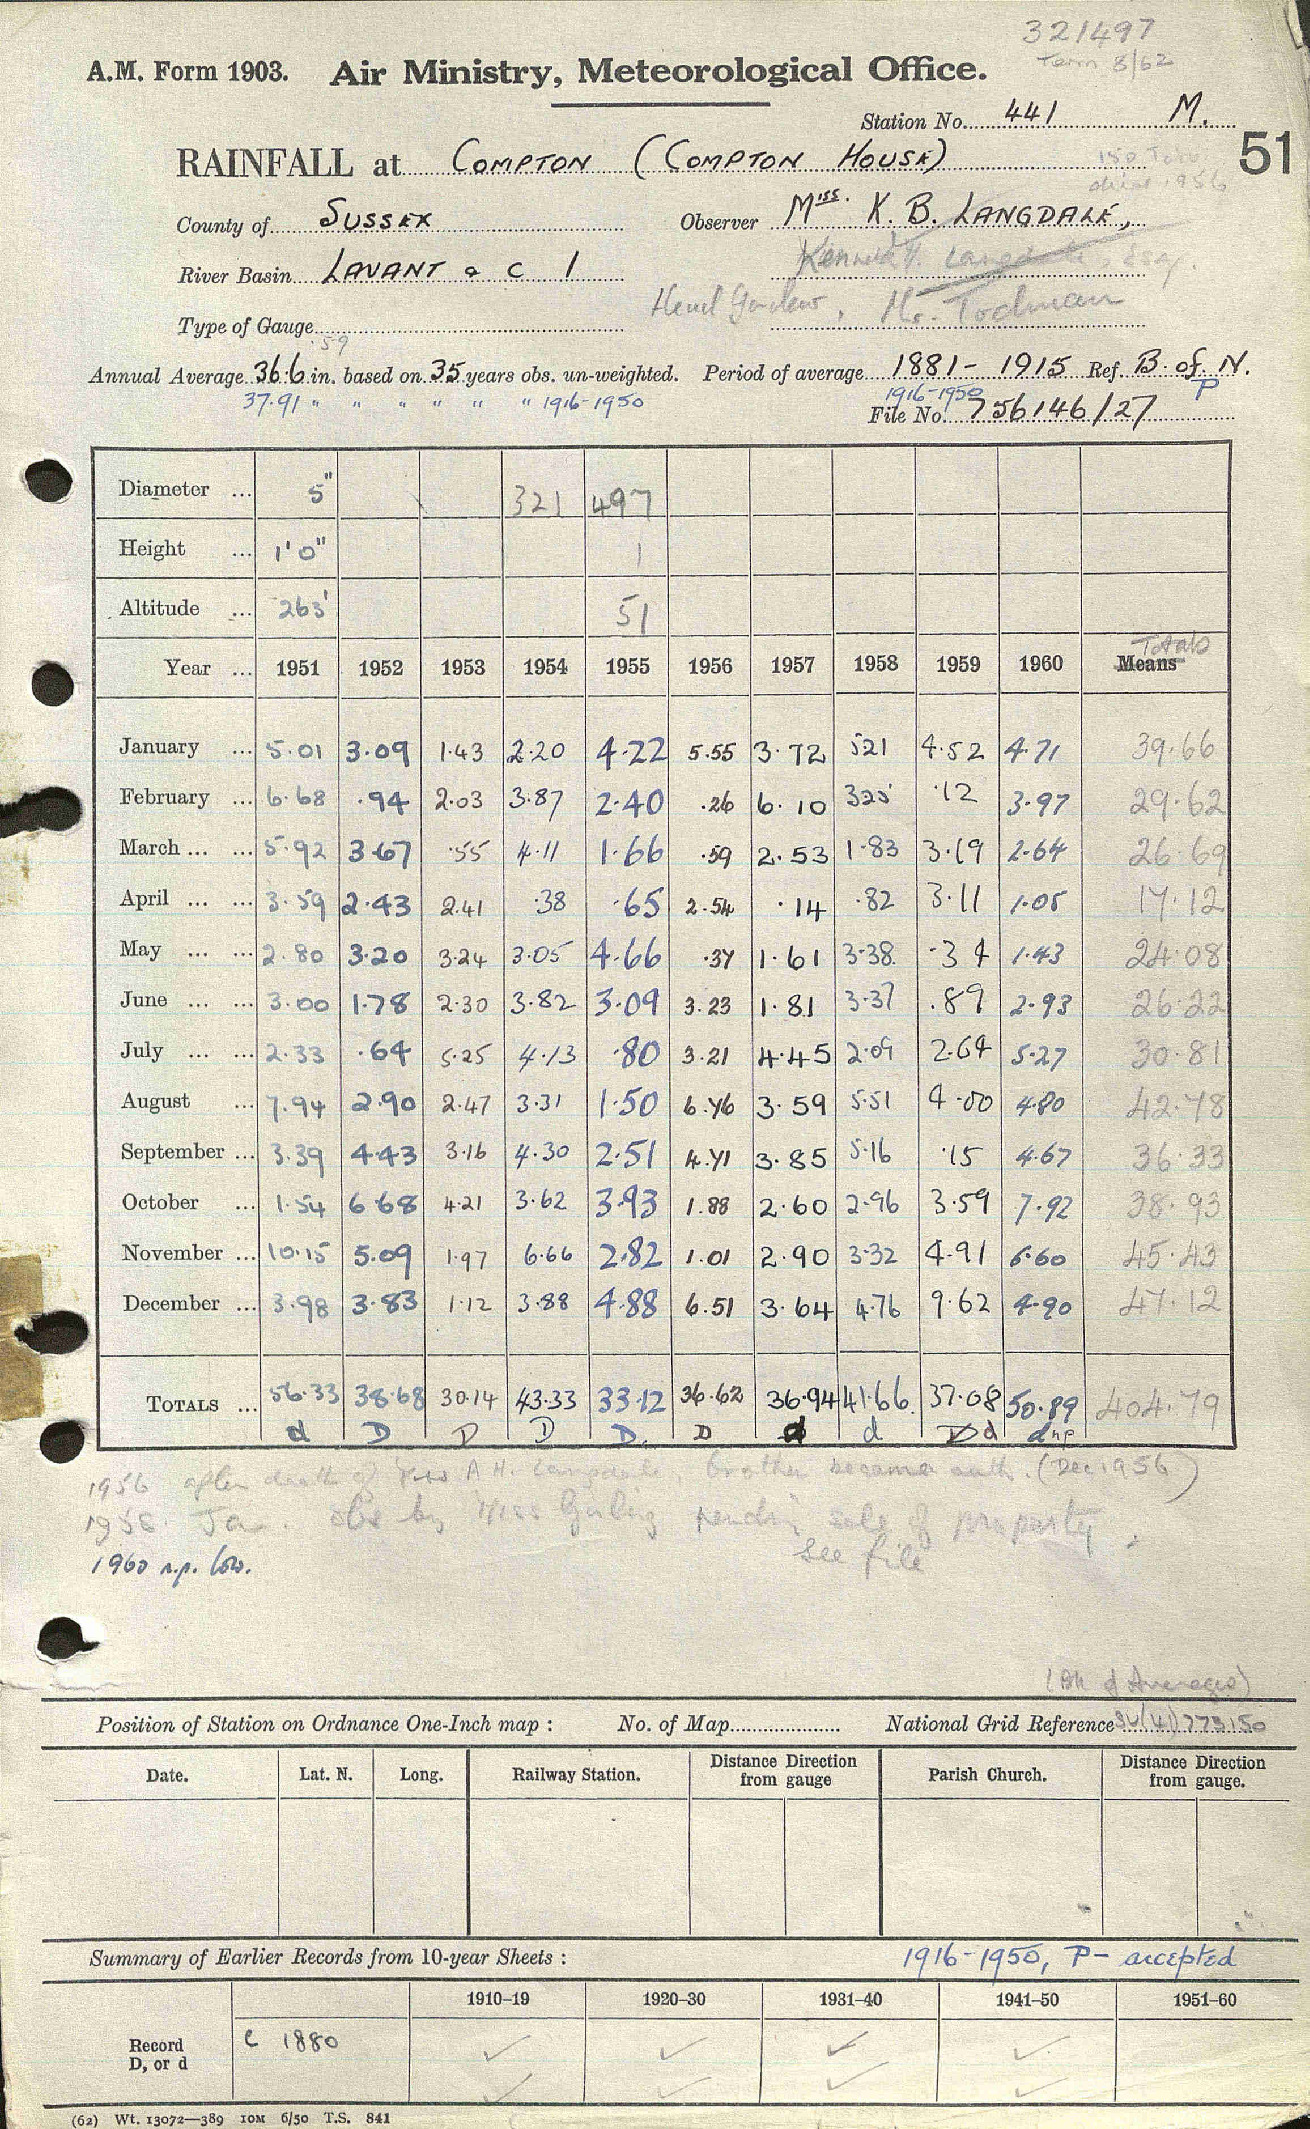 321497
Term 8/62
A.M. Form 1903. Air Ministry, Meteorological Office.
Station No. 441 M.
51
RAINFALL at COMPTON (COMPTON HOUSE)
died 1956
County of SUSSEX Observer Miss. K. B. LANGDALE,
River Basin LAVANT & C 1 Kenneth Langdale, Esq.
Head Gardener, Mr. Todman
Type of Gauge
.59
Annual Average 36.6 in. based on 35 years obs. un-weighted. Period of average 1881 - 1915 Ref. B. of N.
37.91 " " " " " " 1916-1950 1916-1950 P
File No. 756146/27
Diameter ... 5" 321 497
Height ... 1'0" 1
Altitude ... 263' 51
Totals
Year ... 1951 1952 1953 1954 1955 1956 1957 1958 1959 1960 Means
January ... 5.01 3.09 1.43 2.20 4.22 5.55 3.72 521 4.52 4.71 39.66
February ... 6.68 .94 2.03 3.87 2.40 .26 6.10 325 .12 3.97 29.62
March ... ... 5.92 3.67 .55 4.11 1.66 .59 2.53 1.83 3.19 2.64 26.69
April ... ... 3.59 2.43 2.41 .38 .65 2.54 .14 .82 3.11 1.05 17.12
May ... ... 2.80 3.20 3.24 3.05 4.66 .37 1.61 3.38 .34 1.43 24.08
June ... ... 3.00 1.78 2.30 3.82 3.09 3.23 1.81 3.37 .89 2.93 26.22
July ... ... 2.33 .64 5.25 4.13 .80 3.21 4.45 2.09 2.64 5.27 30.81
August ... 7.94 2.90 2.47 3.31 1.50 6.76 3.59 5.51 4.00 4.80 42.78
September ... 3.39 4.43 3.16 4.30 2.51 4.71 3.85 5.16 .15 4.67 36.33
October ... 1.54 6.68 4.21 3.62 3.93 1.88 2.60 2.96 3.59 7.92 38.93
November ... 10.15 5.09 1.97 6.66 2.82 1.01 2.90 3.32 4.91 6.60 45.43
December ... 3.98 3.83 1.12 3.88 4.88 6.51 3.64 4.76 9.62 4.90 47.12
TOTALS ... 56.33 38.68 30.14 43.33 33.12 36.62 36.94 41.66 37.08 50.89 404.79
d D D D D. D d d D d d np
1956 after death of A H. Langdale, brother became auth. (Dec 1956)
1958 Jan. obs by Miss Goring pending sale of property.
See file
1960 n.p. low.
(Bk of Averages)
Position of Station on Ordnance One-Inch map : No. of Map National Grid Reference SU(41)773150
Date. Lat. N. Long. Railway Station. Distance from gauge Direction Parish Church. Distance from gauge. Direction
Summary of Earlier Records from 10-year Sheets : 1916-1950, P - accepted
1910-19 1920-30 1931-40 1941-50 1951-60
Record D, or d C 1880 ✓ ✓ ✓ ✓
✓ ✓ ✓ ✓
(62) Wt. 13072—389 10M 6/50 T.S. 841